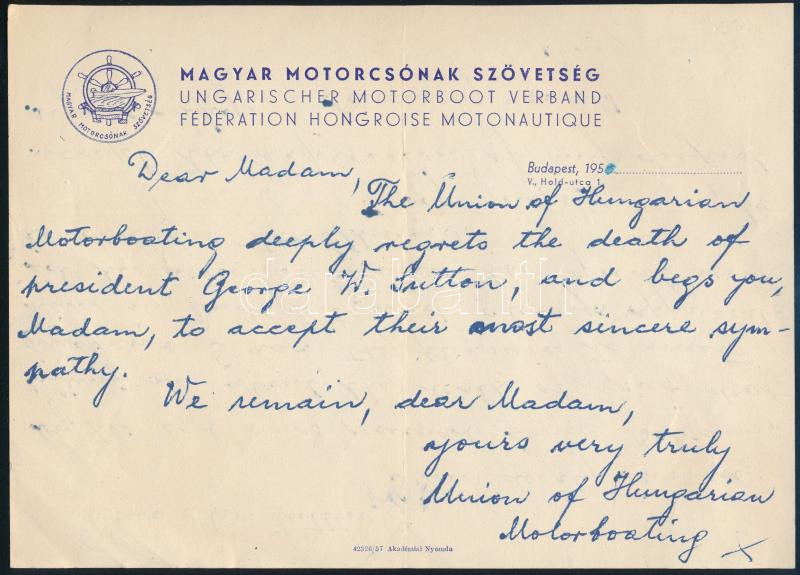 MAGYAR MOTORCSÓNAK SZÖVETSÉG
UNGARISCHER MOTORBOOT VERBAND
FÉDÉRATION HONGROISE MOTONAUTIQUE
MAGYAR MOTORCSÓNAK SZÖVETSÉG
Budapest, 195
V., Hold-utca 1
Dear Madam,
The Union of Hungarian
Motorboating deeply regrets the death of
president George W. Sutton, and begs you,
Madam, to accept their most sincere sym-
pathy.
We remain, dear Madam,
yours very truly
Union of Hungarian
Motorboating
darabanth
42326/57 Akadémiai Nyomda